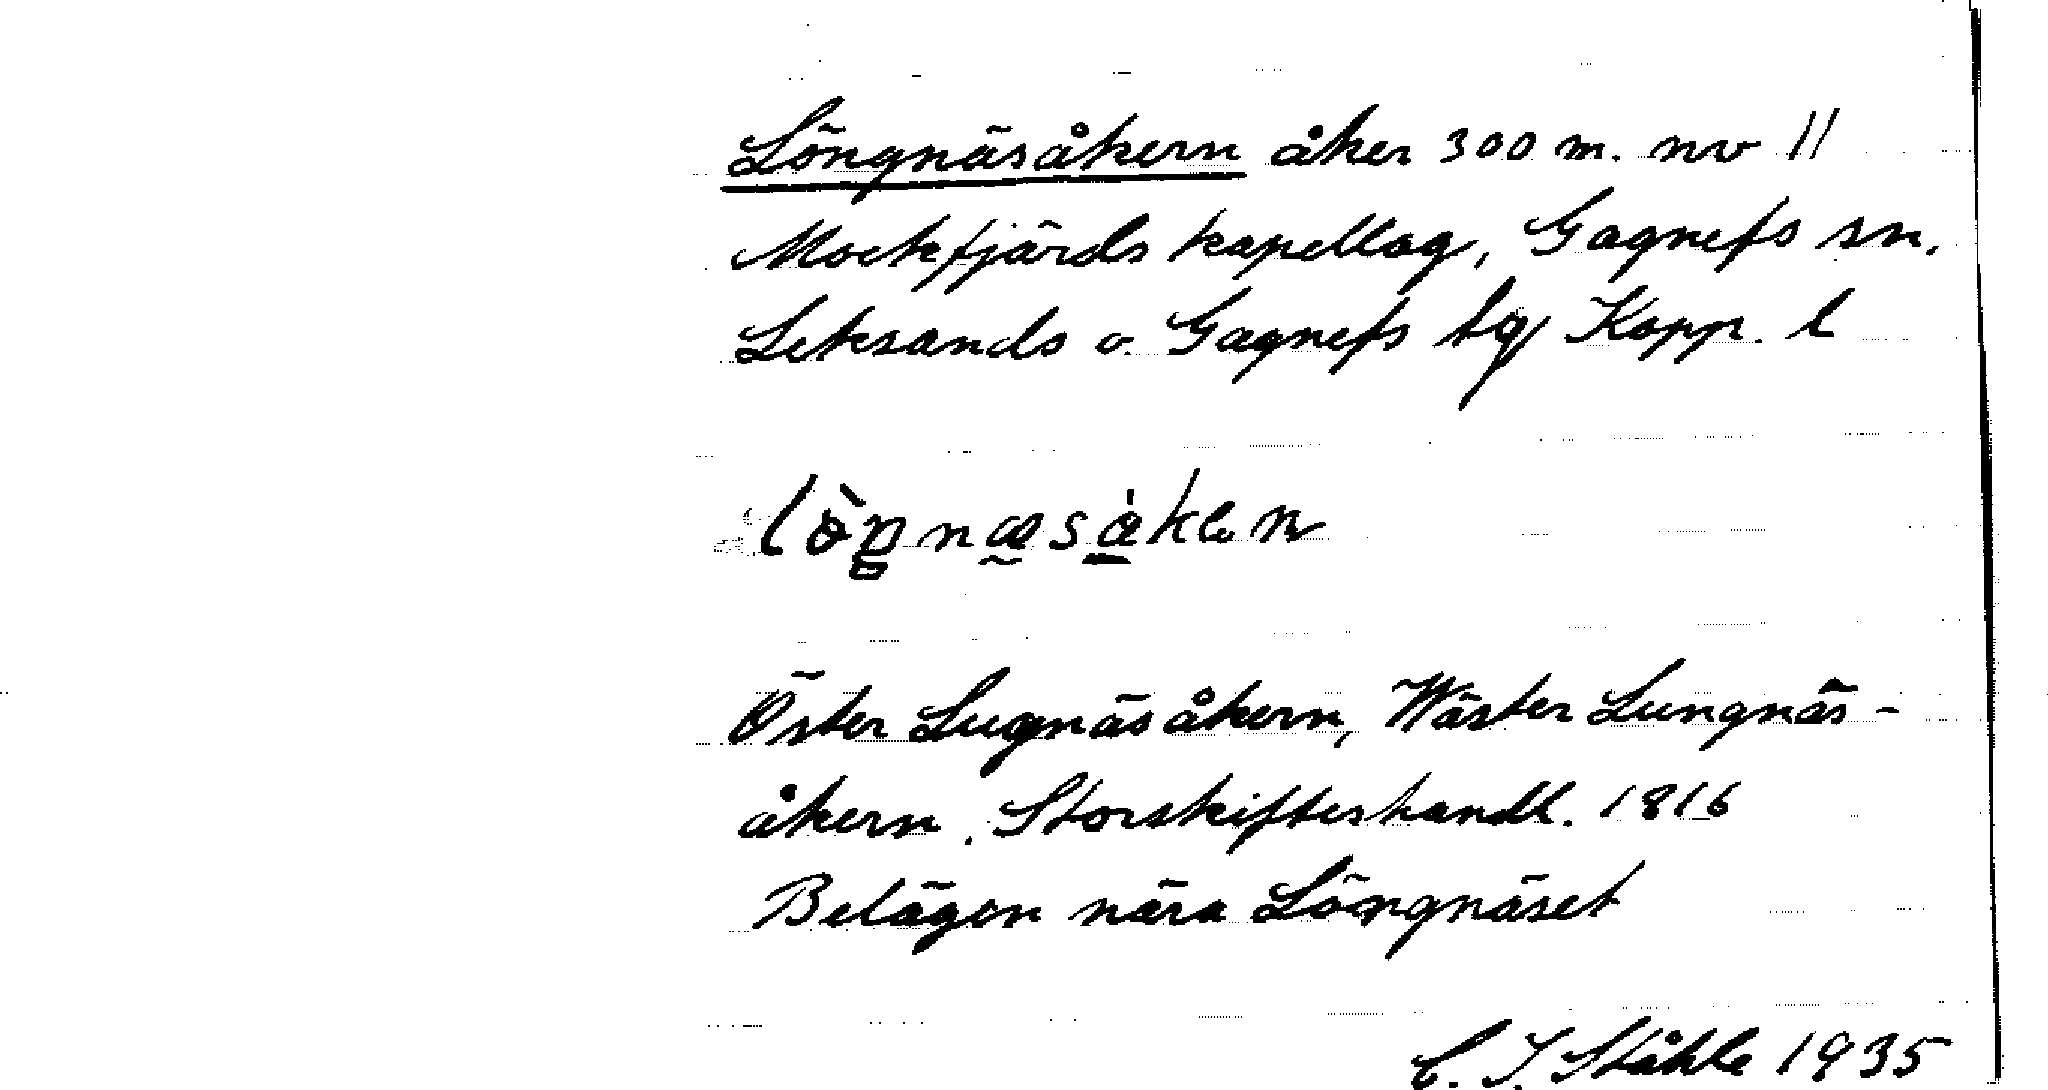 Löngnäsåkern åker 300 m. nv 11
Mockfjärds kapellag, Gagnefs sn.
Leksands o. Gagnefs tg Kopp. l
Öster Lugnäsåkern, Wäster Lungnäs-
åkern. Storskifteshandl. 1816
Belägen nära Löngnäset
C. I. Ståhle 1935